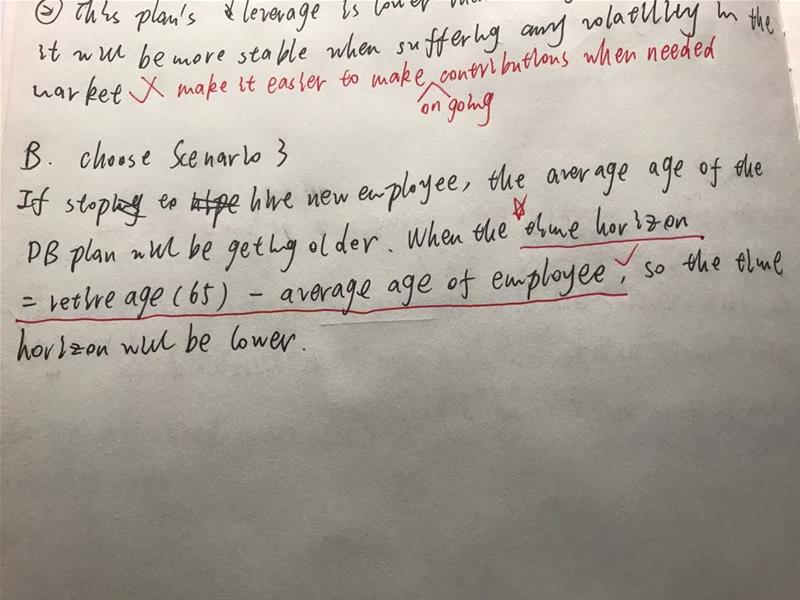 ② This plan's leverage is lower
it will be more stable when suffering any volatility in the
market ✗ make it easier to make contributions when needed
on going
B. choose Scenario 3
If stoping to hire new employee, the average age of the
DB plan will be getting older. When the time horizon
= retire age (65) - average age of employee, so the time
horizon will be lower.